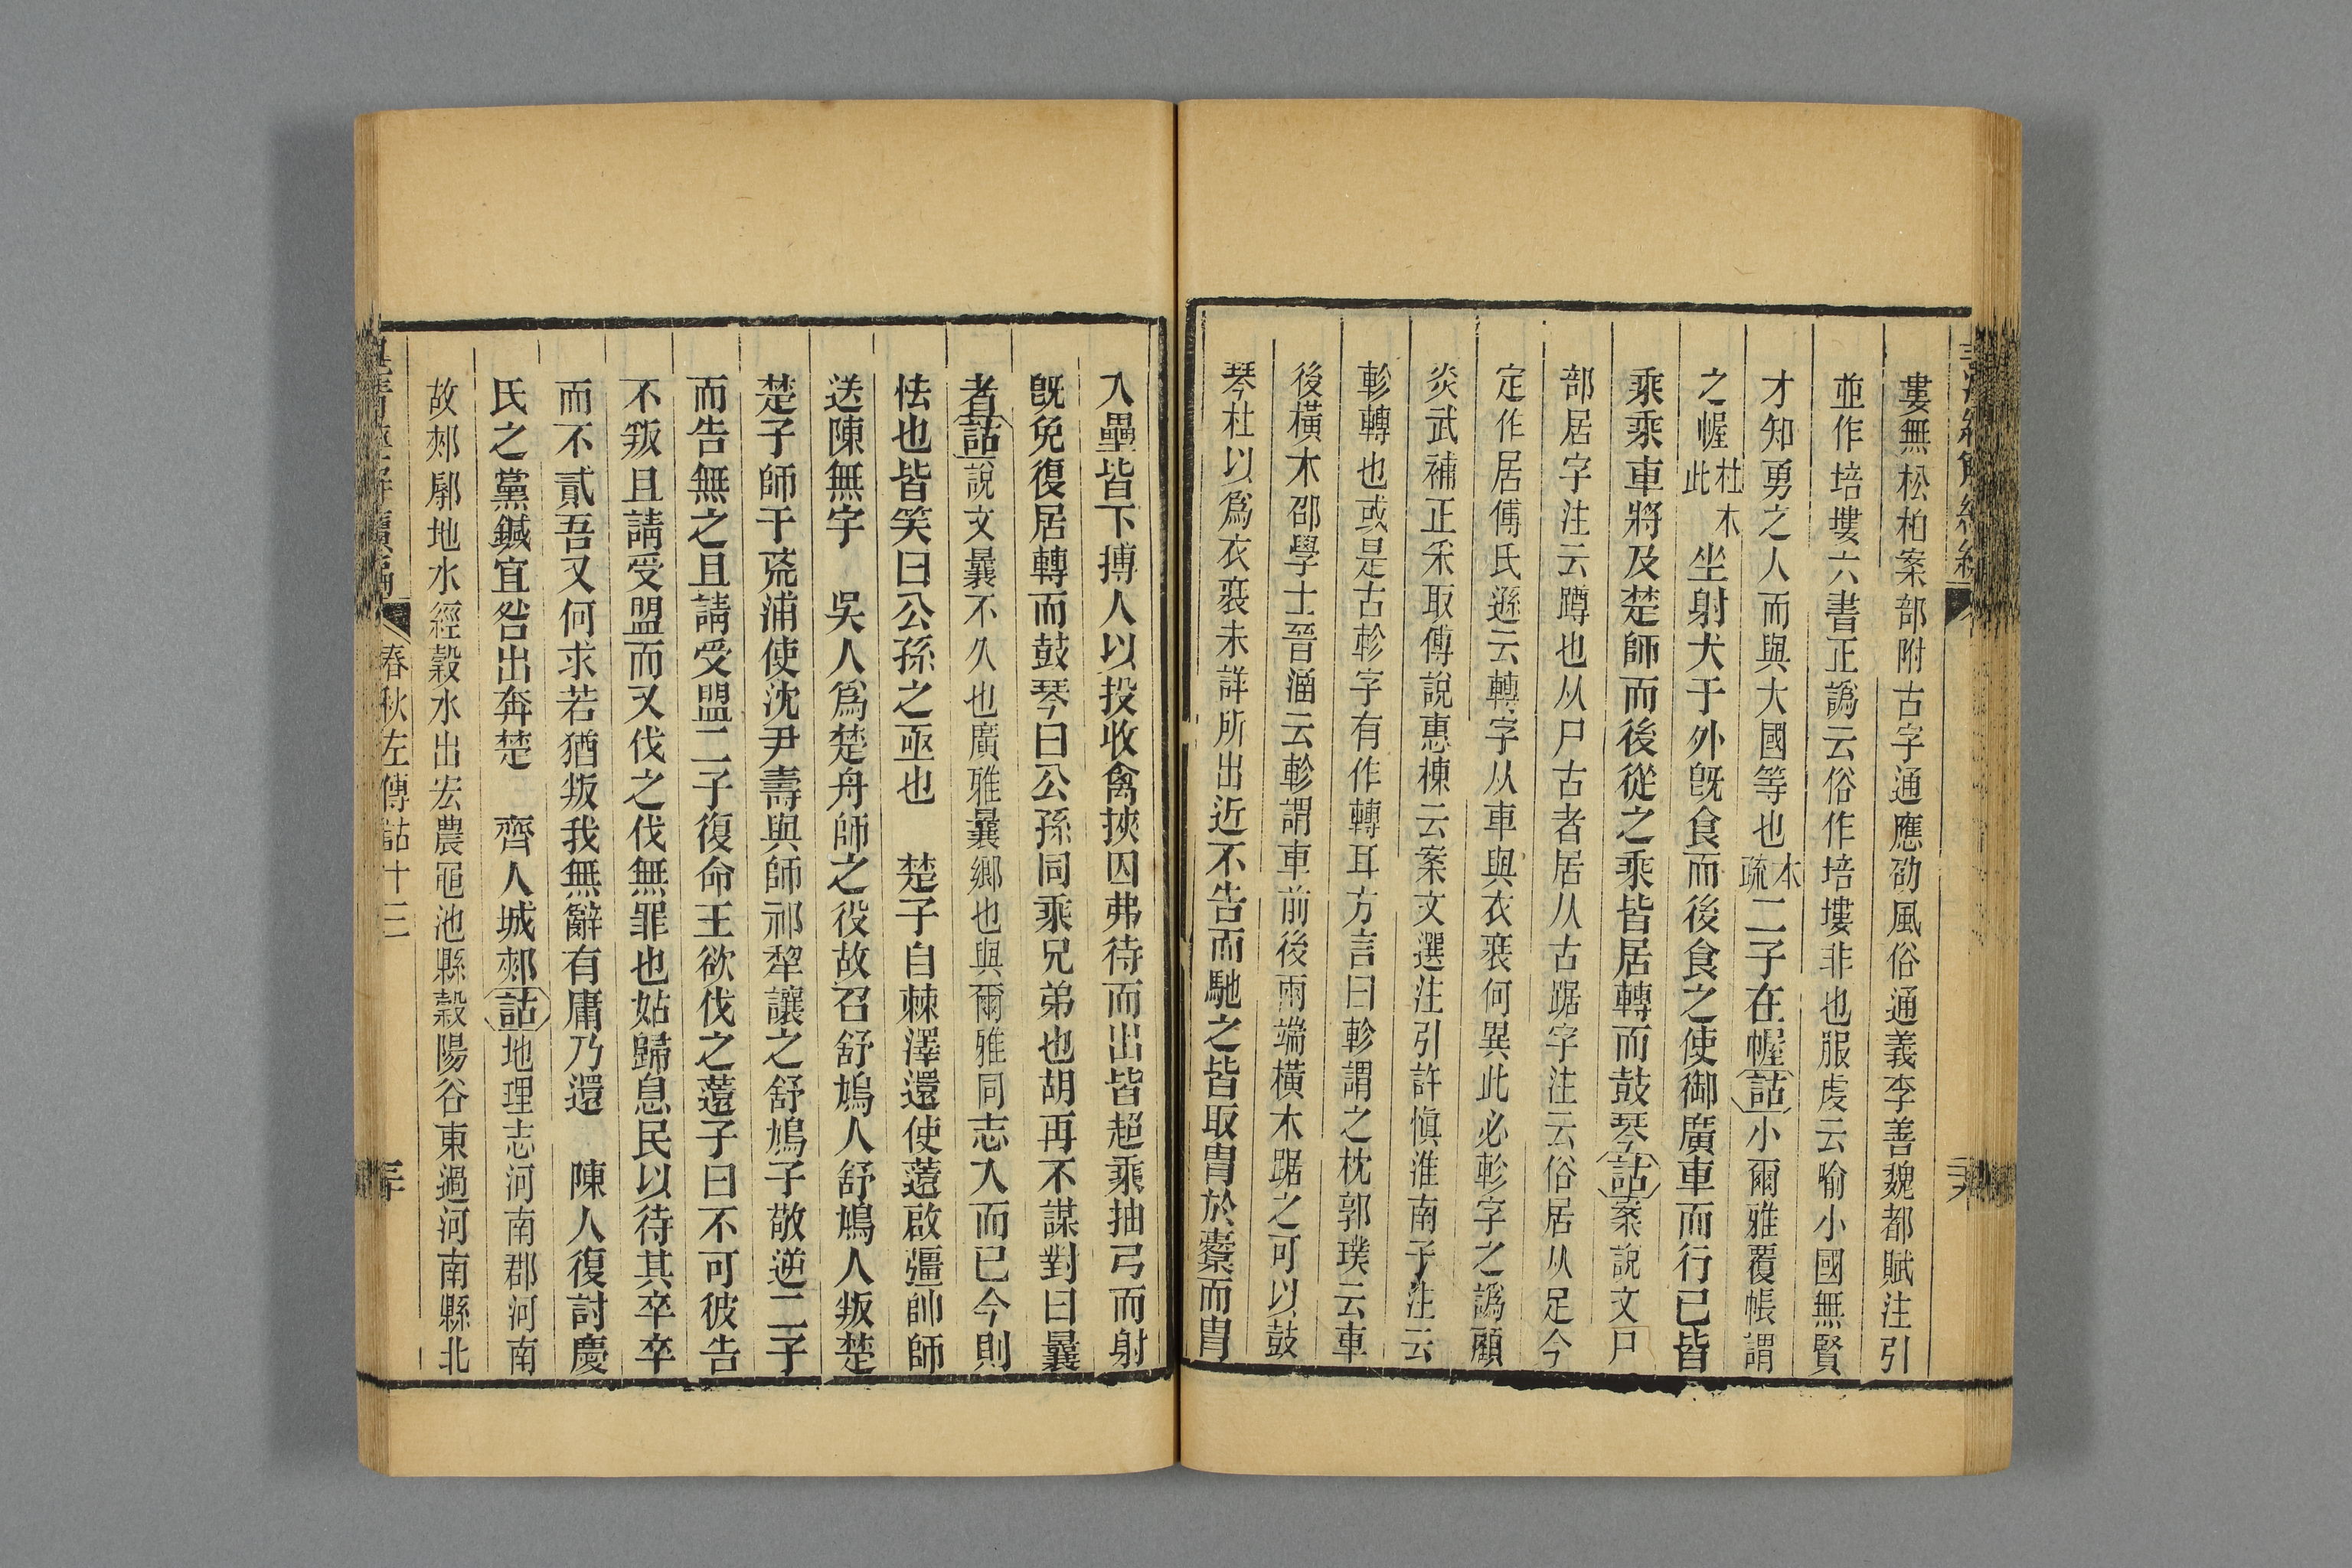 婁無松柏案部附古字通應劭風俗通義李善魏都賦注引
並作培塿六書正譌云俗作培塿非也服虔云喻小國無賢
才知勇之人而與大國等也本疏二子在幄詁小爾雅覆帳謂
之幄杜本此坐射犬于外旣食而後食之使御廣車而行已皆
乘乘車將及楚師而後從之乘皆居轉而鼓琴詁案說文尸
部居字注云蹲也从尸古者居从古踞字注云俗居从足今
定作居傅氏遜云轉字从車與衣裝何異此必軫字之譌顧
炎武補正采取傅說惠棟云案文選注引許愼淮南子注云
軫轉也或是古軫字有作轉耳方言曰軫謂之枕郭璞云車
後橫木邵學士晉涵云軫謂車前後兩端橫木踞之可以鼓
琴杜以爲衣裝未詳所出近不告而馳之皆取胄於櫜而胄
入壘皆下搏人以投收禽挾囚弗待而出皆超乘抽弓而射
旣免復居轉而鼓琴曰公孫同乘兄弟也胡再不謀對曰曩
者詁說文曩不久也廣雅曩鄉也與爾雅同志入而已今則
怯也皆笑曰公孫之亟也 楚子自棘澤還使薳啟彊帥師
送陳無宇 吳人爲楚舟師之役故召舒鳩人舒鳩人叛楚
楚子師于荒浦使沈尹壽與師祁犂讓之舒鳩子敬逆二子
而告無之且請受盟二子復命王欲伐之薳子曰不可彼告
不叛且請受盟而又伐之伐無罪也姑歸息民以待其卒卒
而不貳吾又何求若猶叛我無辭有庸乃還 陳人復討慶
氏之黨鍼宜咎出奔楚 齊人城郟詁地理志河南郡河南
故郟鄏地水經穀水出宏農黽池縣穀陽谷東過河南縣北
春秋左傳詁十三